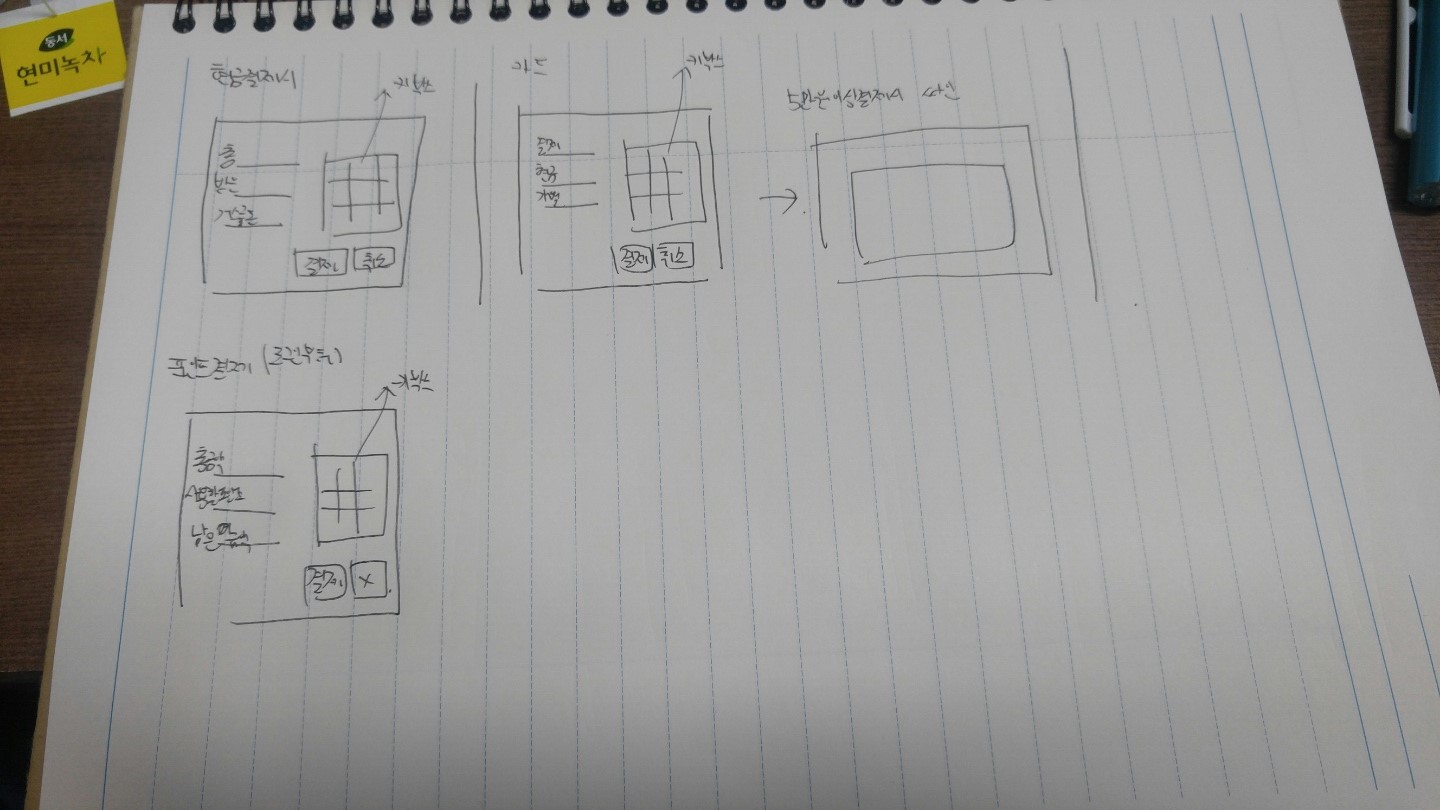 동서
현미녹차
현금결제시
키박스
총
받은
거스름돈
결제
취소
카드
키박스
결제
현금
결제
취소
5만원이상결제시 싸인
포인트결제
키박스
총금액
사용할포인트
남은
결제
X